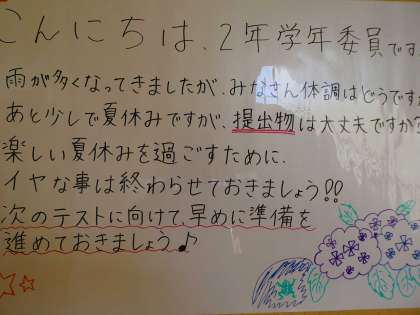 こんにちは、2年学年委員です
雨が多くなってきましたが、みなさん体調はどうですか
あと少しで夏休みですが、提出物は大丈夫ですか?
楽しい夏休みを過ごすために、
イヤな事は終わらせておきましょう!!
次のテストに向けて、早めに準備を
進めておきましょう♪